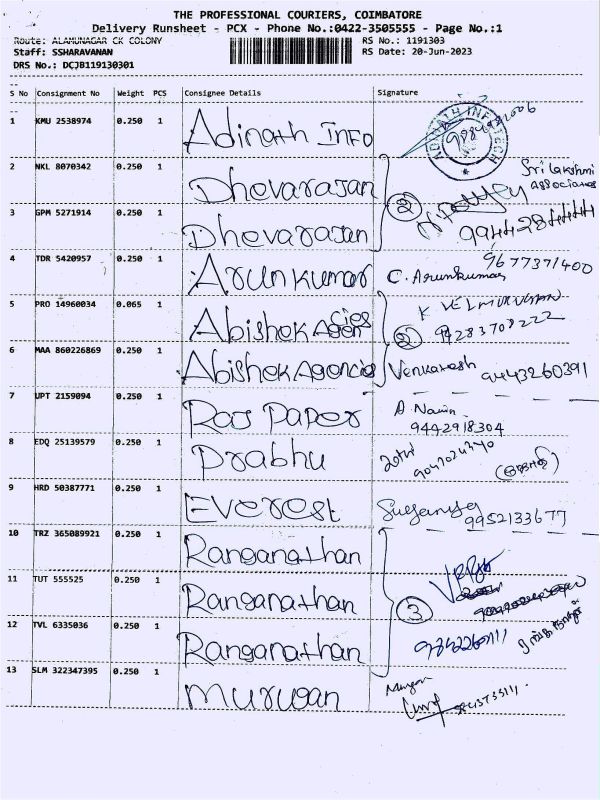 THE PROFESSIONAL COURIERS, COIMBATORE
Delivery Runsheet - PCX - Phone No.:0422-3505555 - Page No.:1
Route: ALAMUNAGAR CK COLONY RS No.: 1191303
Staff: SSHARAVANAN RS Date: 20-Jun-2023
DRS No.: DCJB119130301
S No Consignment No Weight PCS Consignee Details Signature
1 KMU 2538974 0.250 1 Adinath INFO
2 NKL 8070342 0.250 1 Dhevarajan Sri Lakshmi Associates
3 GPM 5271914 0.250 1 Dhevarajan 2
4 TDR 5420957 0.250 1 Arunkumar C. Arunkumar 9677371400
5 PRO 14960034 0.065 1 Abishek Agencies K VELMURUGAN 94283708222
6 MAA 860226869 0.250 1 Abishek Agencies 2 Venkatesh 9443260391
7 UPT 2159094 0.250 1 Raj Paper
9442918304
8 EDQ 25139579 0.250 1 Prabhu
9 HRD 50387771 0.250 1 Everest 9952133677
10 TRZ 365089921 0.250 1 Ranganathan
11 TUT 555525 0.250 1 Ranganathan 3
12 TVL 6335036 0.250 1 Ranganathan
13 SLM 322347395 0.250 1 Murugan